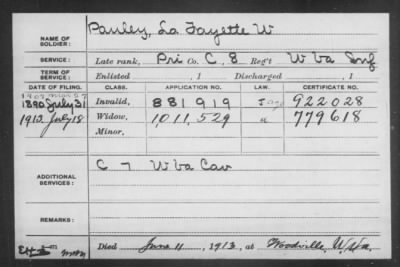 NAME OF SOLDIER: Pauley, La Fayette W
SERVICE: Late rank, Pri Co. C, 8 Reg't W Va Inf
TERM OF SERVICE: Enlisted , 1 Discharged , 1
DATE OF FILING. CLASS. APPLICATION NO. LAW. CERTIFICATE NO.
1890 July 31 Invalid, 881919 922028
1913 July 18 Widow, 1,011,529 779618
Minor,
ADDITIONAL SERVICES: C 7 W Va Cav
REMARKS:
Died June 11, 1913, at Woodville, W. Va.